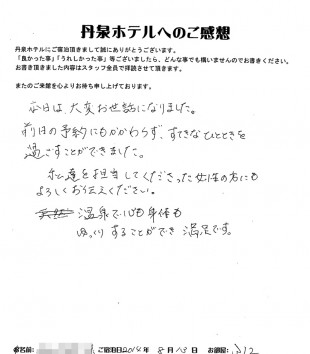 丹泉ホテルへのご感想
丹泉ホテルにご宿泊頂きまして誠にありがとうございます。
「良かった事」「うれしかった事」等ございましたら、どんな事でも構いませんのでお書きください。
お書き頂きました内容はスタッフ全員で拝読させて頂きます。
またのご来館を心よりお待ち申し上げております。
本日は、大変お世話になりました。
前日の予約にもかかわらず、すてきなひとときを
過ごすことができました。
私達を担当してくださった女性の方にも
よろしくお伝えください。
温泉で心も身体も
ゆっくりすることができ満足です。
お名前: ご宿泊日2014年 8月13日 お部屋: 212